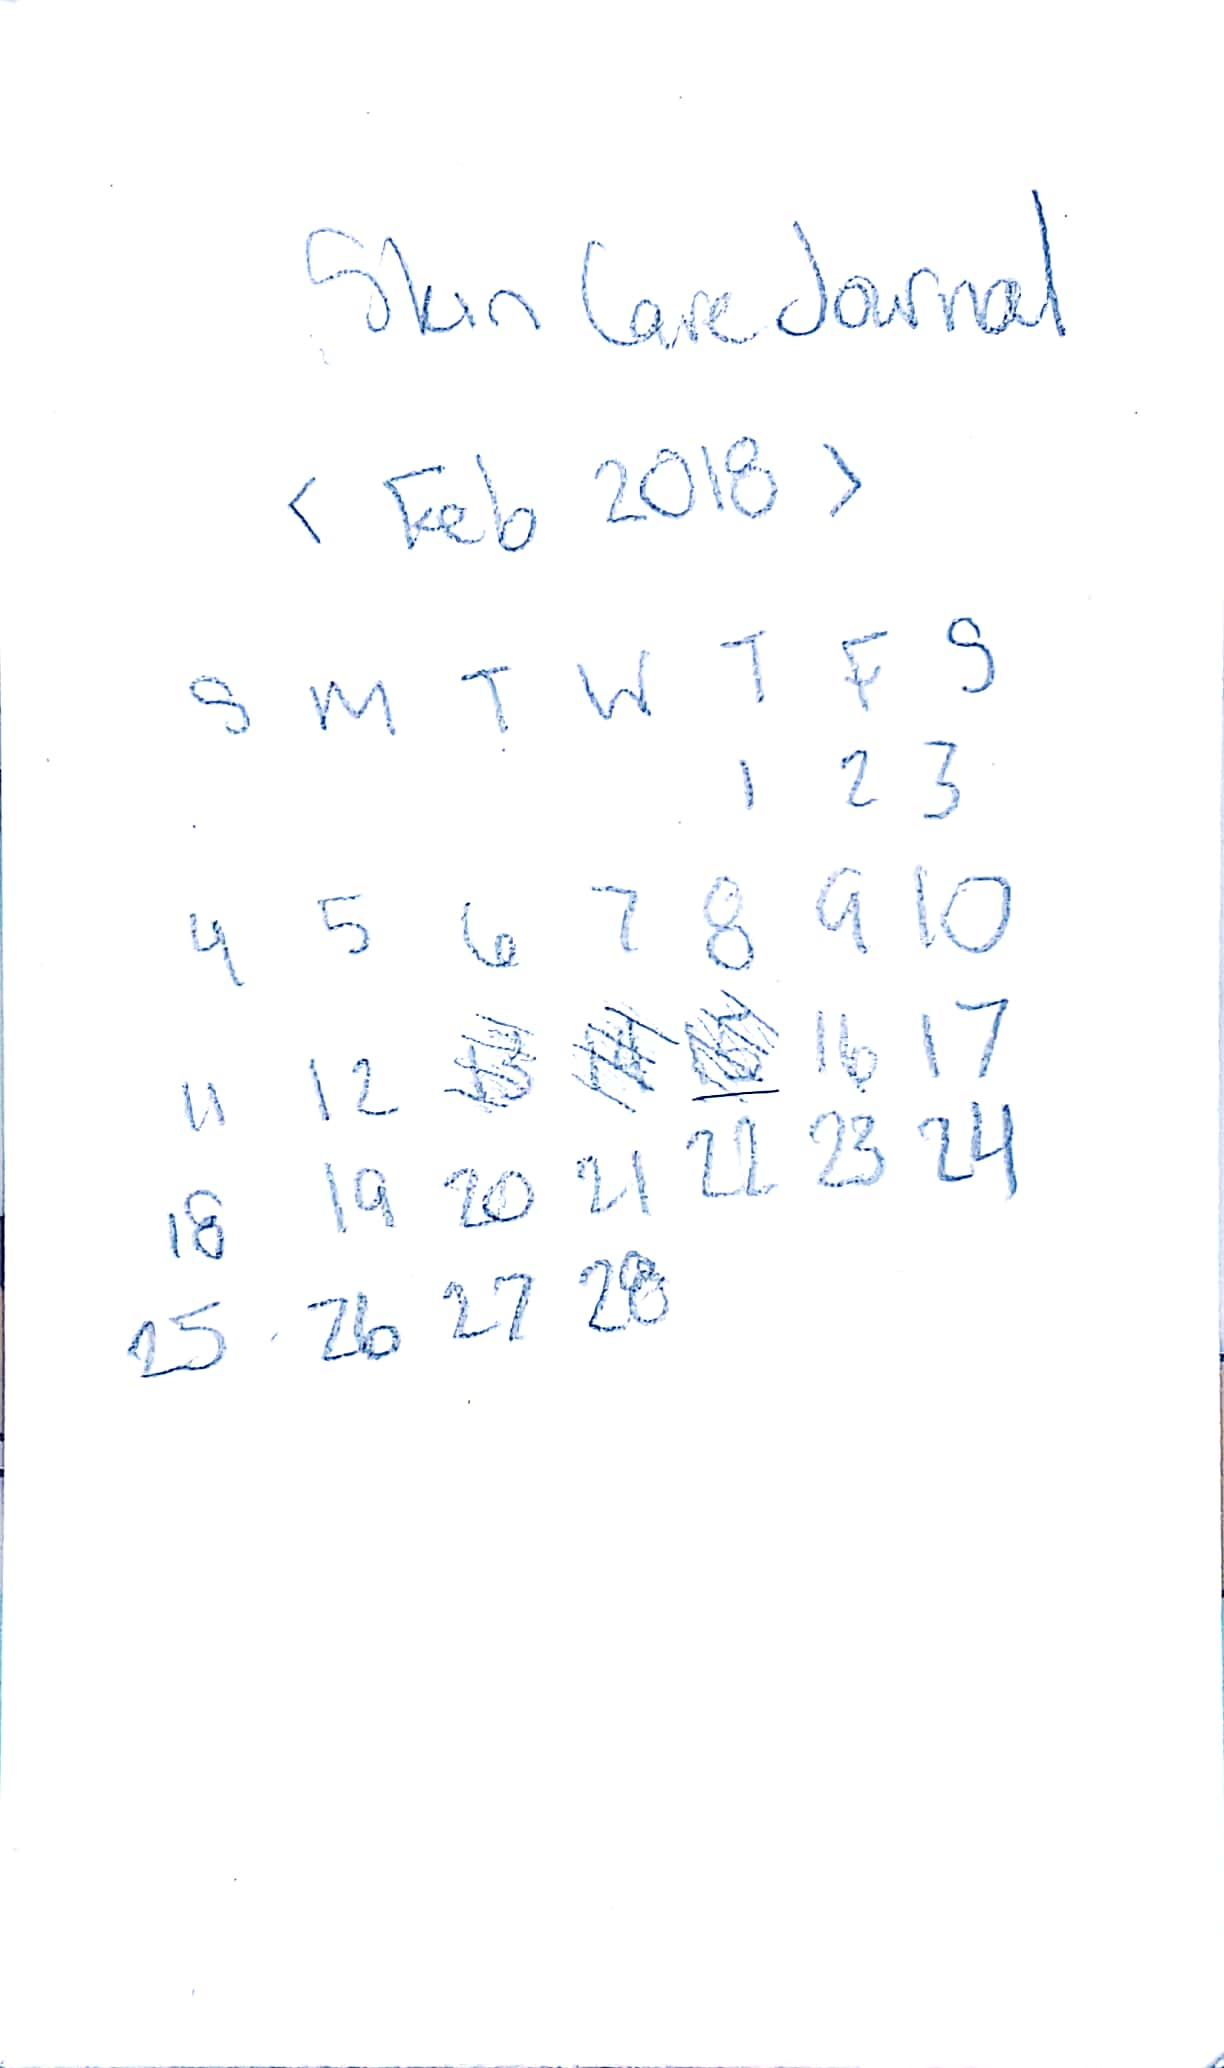 Skin Care Journal
< Feb 2018 >
S M T W T F S
1 2 3
4 5 6 7 8 9 10
11 12 13 14 15 16 17
18 19 20 21 22 23 24
25 26 27 28